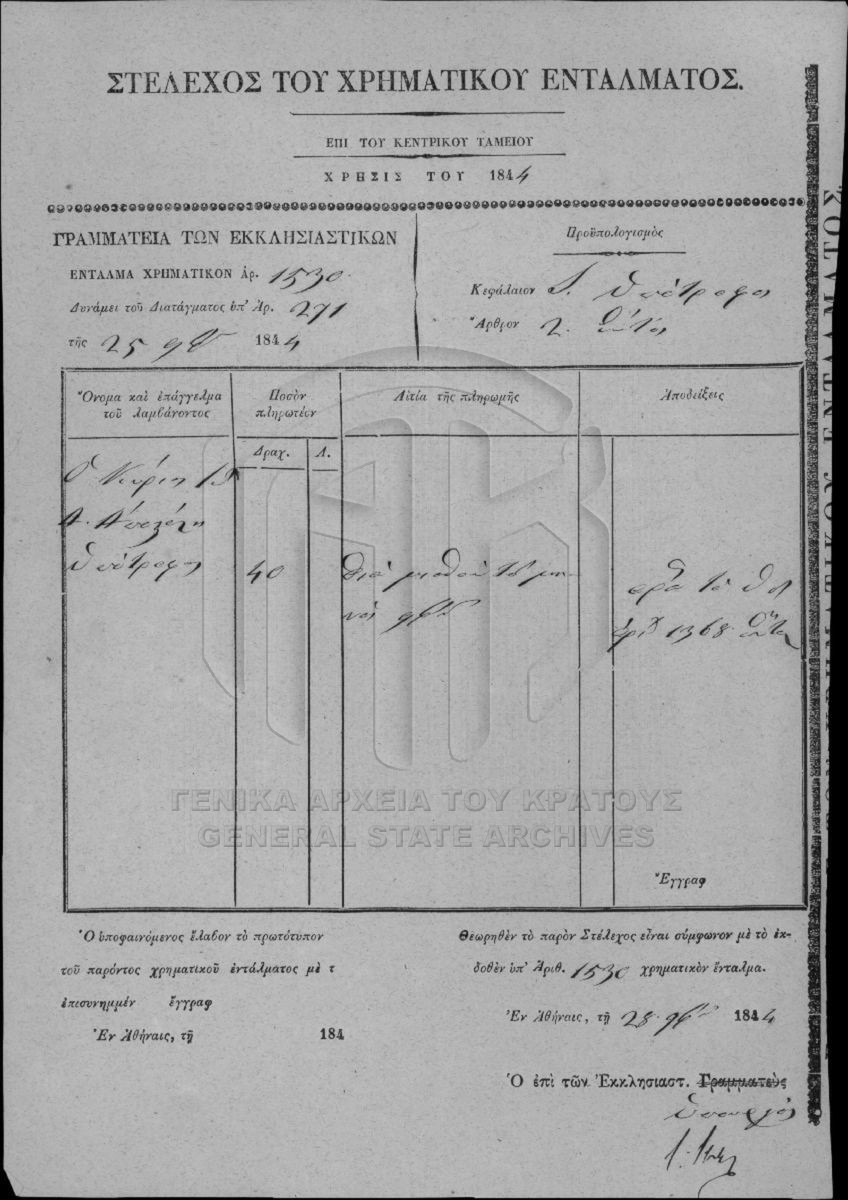 ΣΤΕΛΕΧΟΣ ΤΟΥ ΧΡΗΜΑΤΙΚΟΥ ΕΝΤΑΛΜΑΤΟΣ.
ΕΠΙ ΤΟΥ ΚΕΝΤΡΙΚΟΥ ΤΑΜΕΙΟΥ
ΧΡΗΣΙΣ ΤΟΥ 1844
ΓΡΑΜΜΑΤΕΙΑ ΤΩΝ ΕΚΚΛΗΣΙΑΣΤΙΚΩΝ
ΕΝΤΑΛΜΑ ΧΡΗΜΑΤΙΚΟΝ Ἀρ. 1530.
Δυνάμει τοῦ Διατάγματος ὑπ' Ἀρ. 271
τῆς 25 9βρ 1844
Προϋπολογισμὸς
Κεφάλαιον Υπότροφος
Ἄρθρον 2.
Ὄνομα καὶ ἐπάγγελμα
τοῦ λαμβάνοντος
Ποσὸν
πληρωτέον
Αἰτία τῆς πληρωμῆς
Ἀποδείξεις
Δραχ. Λ.
Ὁ Κύριος
Υπότροφος
40
Διὰ μισθὸν τοῦ μη-
νὸς 9βρ
ἀρ. 1368
Ἔγγραφ
Ὁ ὑποφαινόμενος ἔλαβον τὸ πρωτότυπον
τοῦ παρόντος χρηματικοῦ ἐντάλματος μὲ τ
ἐπισυνημμέν ἔγγραφ
Ἐν Ἀθήναις, τῇ 184
Θεωρηθὲν τὸ παρὸν Στέλεχος εἶναι σύμφωνον μὲ τὸ ἐκ-
δοθὲν ὑπ' Ἀριθ. 1530 χρηματικὸν ἔνταλμα.
Ἐν Ἀθήναις, τῇ 28 9βρ 1844
Ὁ ἐπὶ τῶν Ἐκκλησιαστ. Γραμματεὺς
Υπουργός
ΓΕΝΙΚΑ ΑΡΧΕΙΑ ΤΟΥ ΚΡΑΤΟΥΣ
GENERAL STATE ARCHIVES